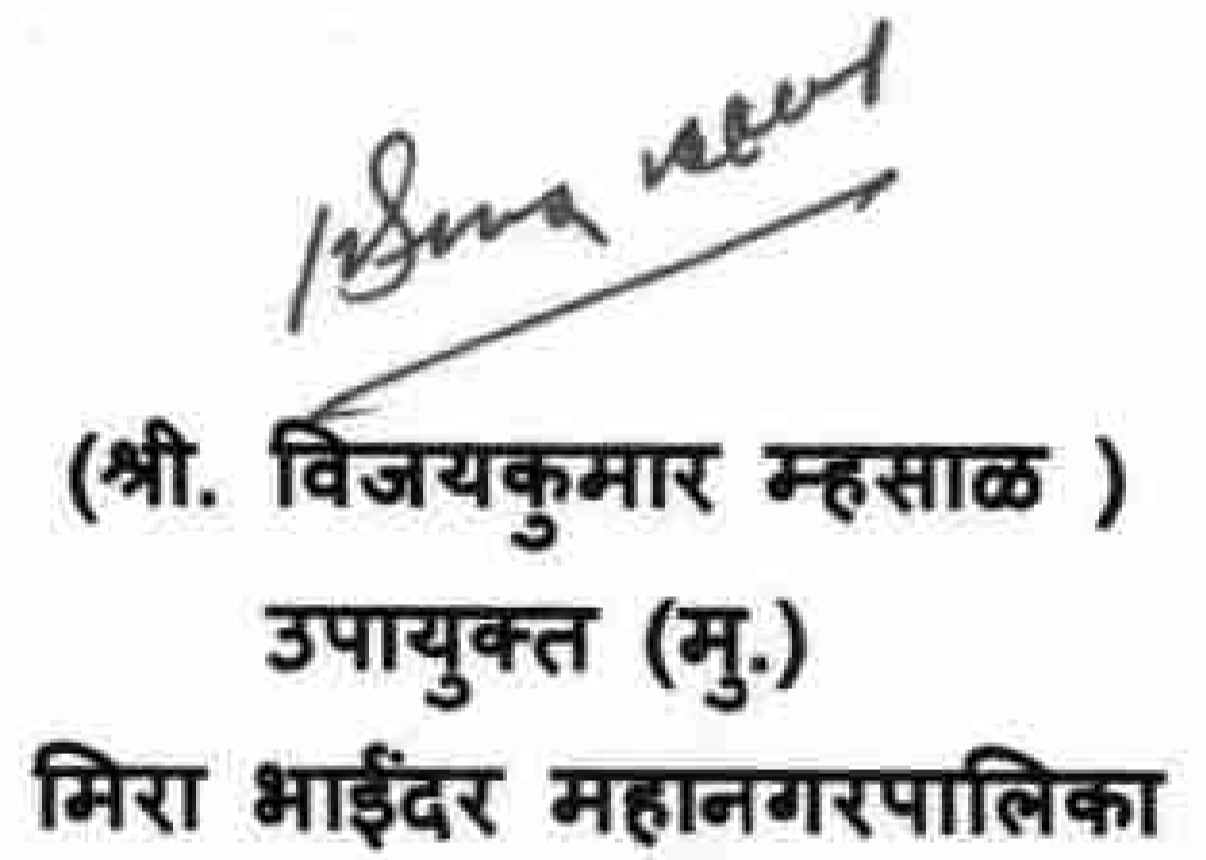 (श्री. विजयकुमार म्हसाळ )
उपायुक्त (मु.)
मिरा भाईंदर महानगरपालिका